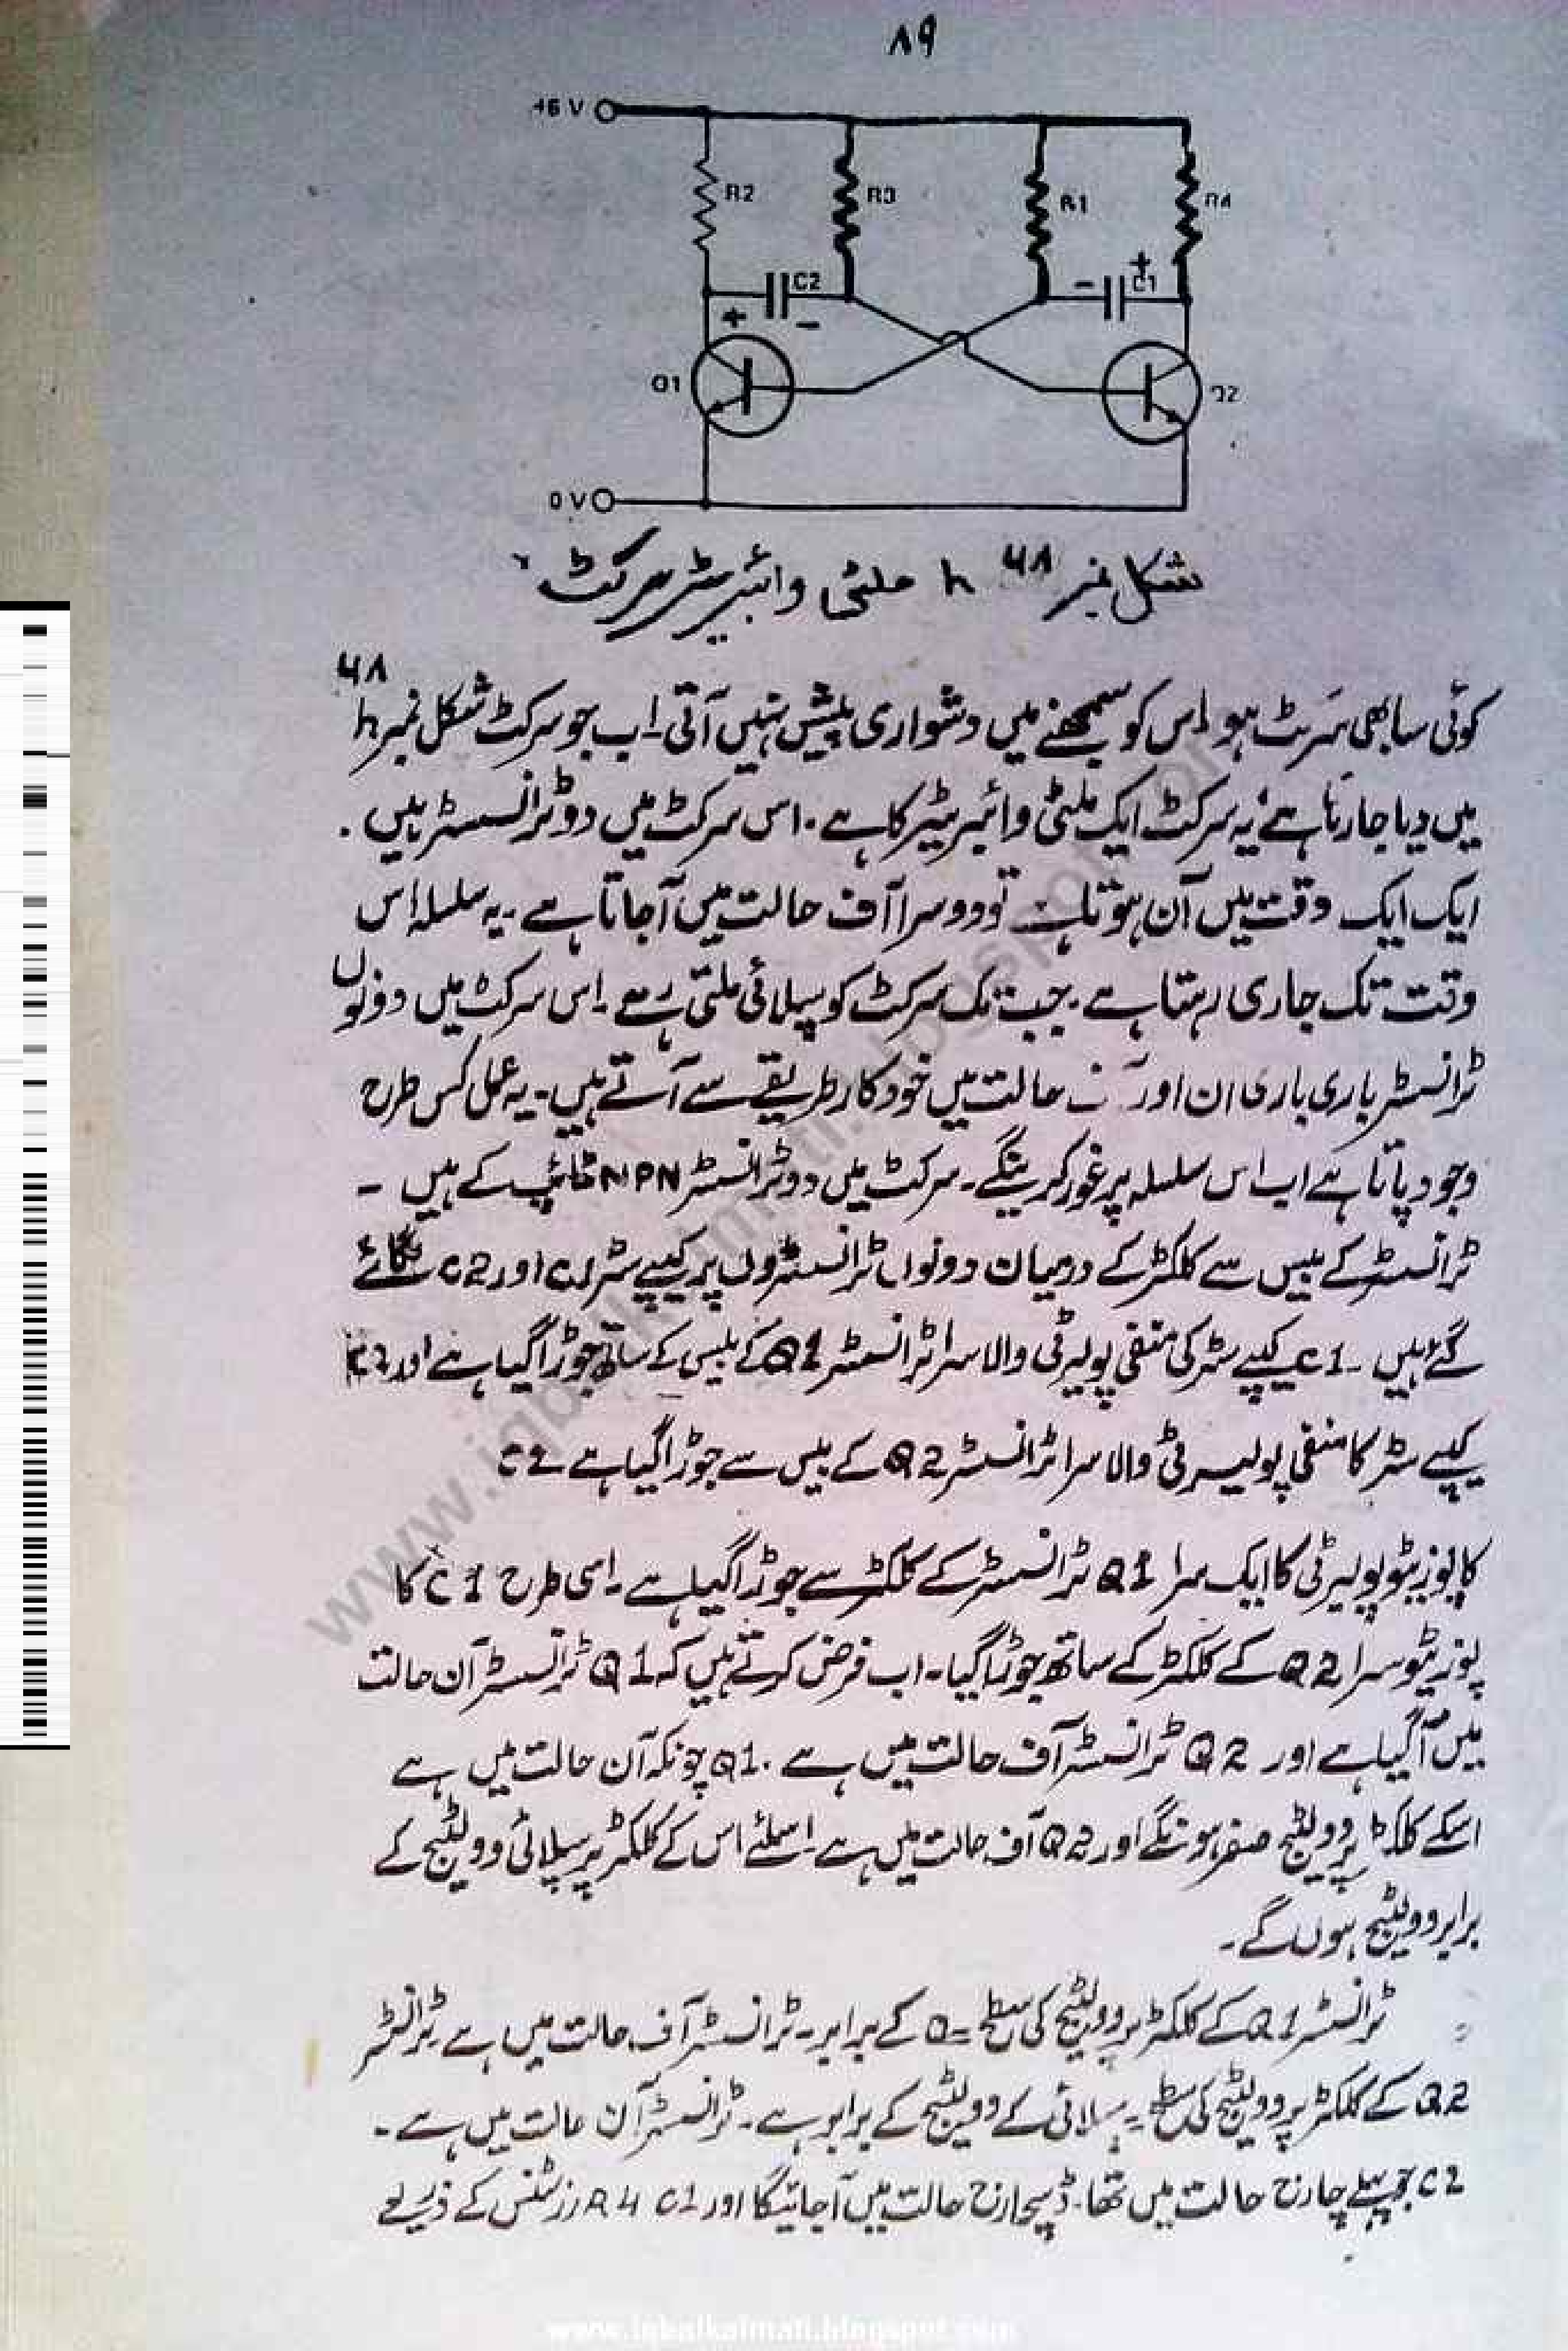 ۸۹
+6 V
R2
R3
R1
R4
C2
+
-
-
+
C1
Q1
Q2
0 V
شکل نمبر ۶۸ h ملٹی وائبریٹر سرکٹ
کوئی سا بھی سرکٹ ہو اس کو سمجھنے میں دشواری پیش نہیں آتی۔ اب جو سرکٹ شکل نمبر ۶۸ h
میں دیا جا رہا ہے یہ سرکٹ ایک ملٹی وائبریٹر کا ہے۔ اس سرکٹ میں دو ٹرانسسٹر ہیں۔
ایک ایک وقت میں آن ہوتا ہے تو دوسرا آف حالت میں آجاتا ہے۔ یہ سلسلہ اس
وقت تک جاری رہتا ہے۔ جب تک سرکٹ کو سپلائی ملتی رہے۔ اس سرکٹ میں دونوں
ٹرانسسٹر باری باری ان اور حالت میں خودکار طریقے سے آتے ہیں۔ یہ عمل کس طرح
وجود پاتا ہے اب اس سلسلہ پر غور کرینگے۔ سرکٹ میں دو ٹرانسسٹر NPN ٹائپ کے ہیں۔
ٹرانسسٹر کے بیس سے کلکٹر کے درمیان دونوں ٹرانسسٹروں پر کیپے سٹر C1 اور C2 لگائے
گئے ہیں۔ C1 کیپے سٹر کی منفی پولیرٹی والا سرا ٹرانسسٹر Q1 کے بیس کے ساتھ جوڑا گیا ہے اور C2
کیپے سٹر کا منفی پولیرٹی والا سرا ٹرانسسٹر Q2 کے بیس سے جوڑا گیا ہے C2
کا پوزیٹو پولیرٹی کا ایک سرا Q1 ٹرانسسٹر کے کلکٹر سے جوڑا گیا ہے۔ اسی طرح C1 کا
پوزیٹو سرا Q2 کے کلکٹر کے ساتھ جوڑا گیا۔ اب فرض کرتے ہیں کہ Q1 ٹرانسسٹر آن حالت
میں آگیا ہے اور Q2 ٹرانسسٹر آف حالت میں ہے۔ Q1 چونکہ آن حالت میں ہے
اسکے کلکٹر پر وولٹیج صفر ہونگے اور Q2 آف حالت میں ہے اسلئے اس کے کلکٹر پر سپلائی وولٹیج کے
برابر وولٹیج ہوں گے۔
ٹرانسسٹر Q1 کے کلکٹر پر وولٹیج کی سطح = 0 کے برابر۔ ٹرانسسٹر آف حالت میں ہے۔ ٹرانسسٹر
Q2 کے کلکٹر پر وولٹیج کی سطح = سپلائی کے وولٹیج کے برابر ہے۔ ٹرانسسٹر آن حالت میں ہے۔
C2 جو پہلے چارج حالت میں تھا۔ ڈسچارج حالت میں آجائیگا اور C1 R4 رزسٹنس کے ذریعے
www.iqbalkalmati.blogspot.com
www.iqbalkalmati.blogspot.com